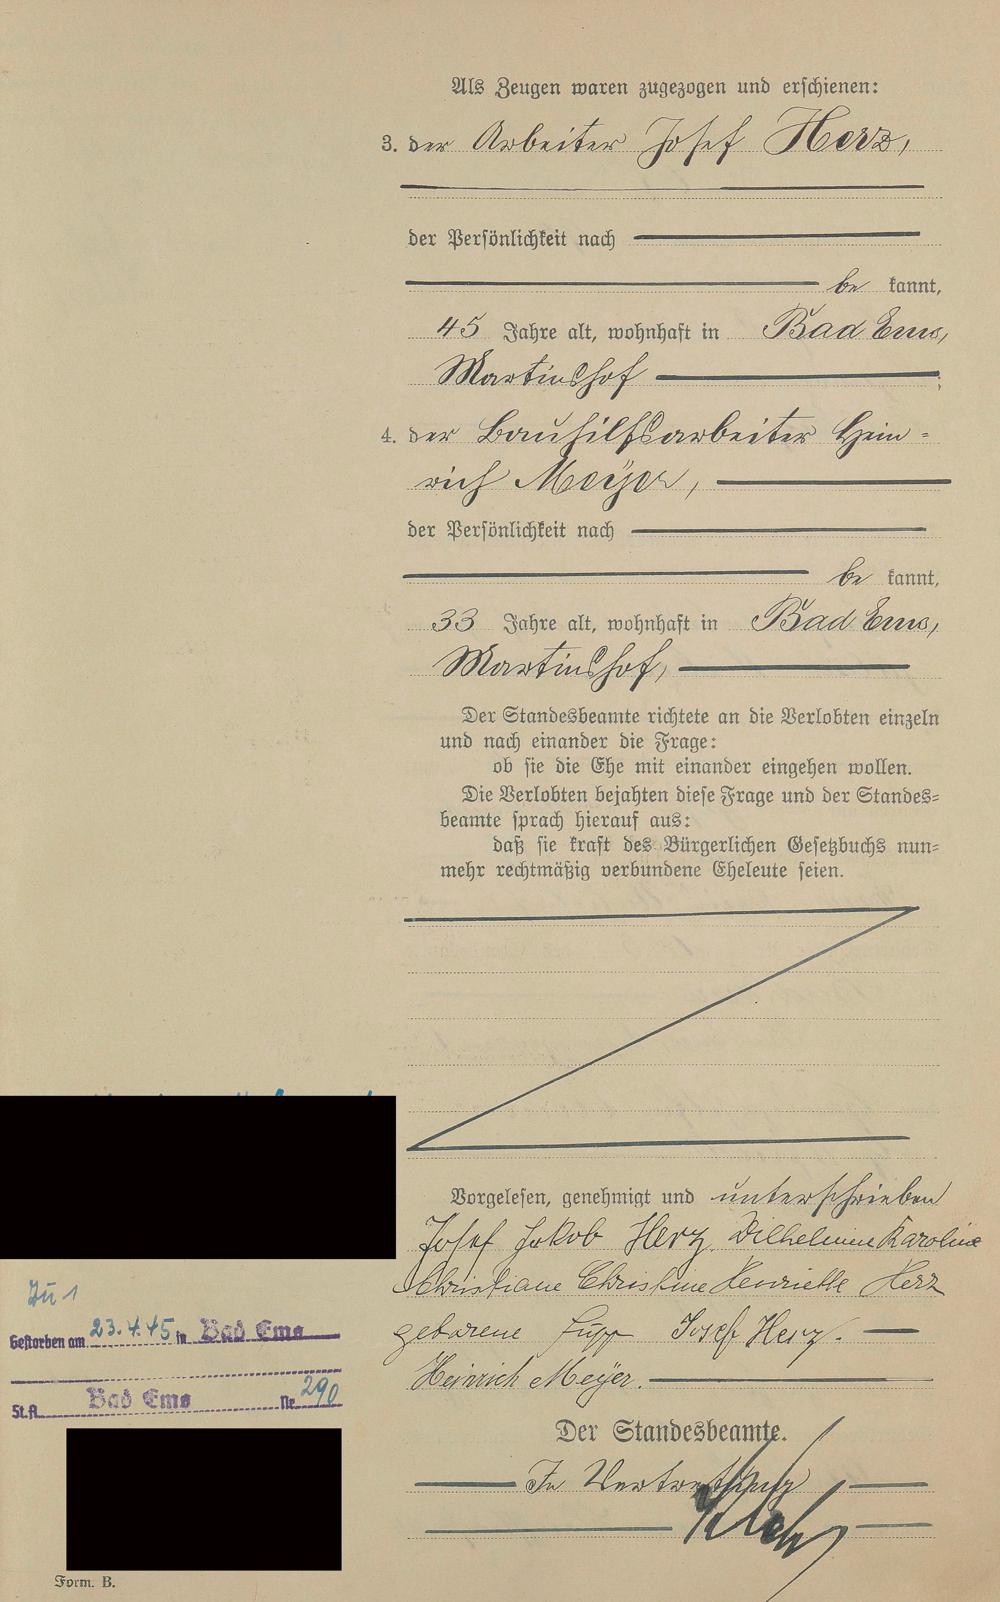 Als Zeugen waren zugezogen und erschienen:
3. der Arbeiter Josef Herz,
der Persönlichkeit nach
be kannt,
45 Jahre alt, wohnhaft in Bad Ems,
Martinshof
4. der Bauhilfsarbeiter Hein-
rich Meÿer,
der Persönlichkeit nach
be kannt,
33 Jahre alt, wohnhaft in Bad Ems,
Martinshof,
Der Standesbeamte richtete an die Verlobten einzeln
und nach einander die Frage:
ob sie die Ehe mit einander eingehen wollen.
Die Verlobten bejahten diese Frage und der Standes-
beamte sprach hierauf aus:
daß sie kraft des Bürgerlichen Gesetzbuchs nun-
mehr rechtmäßig verbundene Eheleute seien.
Vorgelesen, genehmigt und unterschrieben
Josef Jakob Herz. Wilhelmine Karoline
Christiane Christine Henriette Herz
geborene Josef Herz.
Heinrich Meÿer.
Der Standesbeamte.
In Vertretung
Zu 1
Gestorben am 23.4.45 in Bad Ems
St.A. Bad Ems Nr. 290
Form. B.